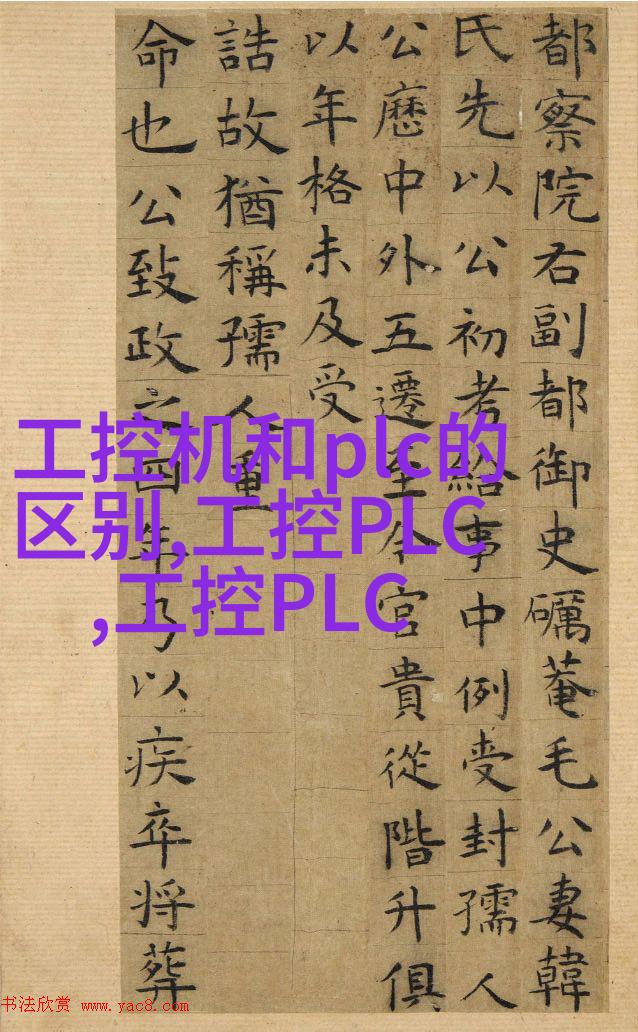 都察院右副都御史礪菴毛公妻韓
氏先以公初考給事中例受封孺人
公歷中外五遷至今官貴從階升俱
以年格未及受
誥故猶稱孺人重
命也公致政之四年乃以疾卒將葬
工控机和plc的
区别,工控PLC
,工控PLC
书法欣赏 www.yac8.com